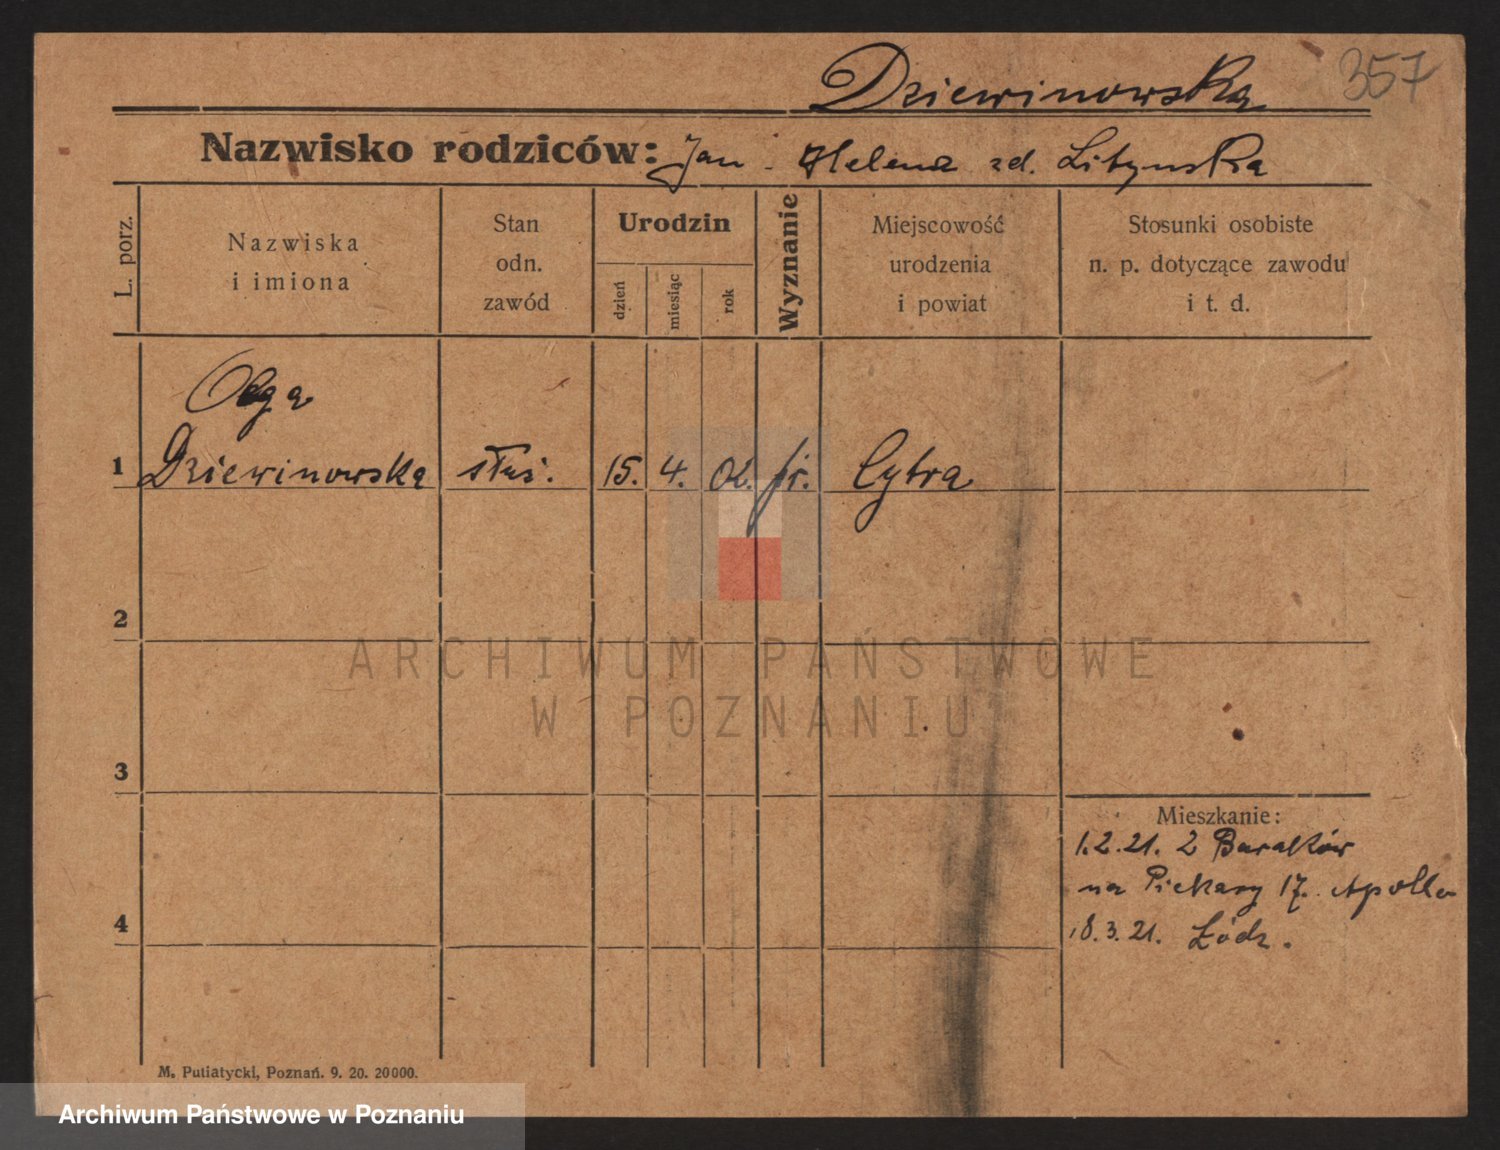 357
Dziewinowska
Nazwisko rodziców: Jan - Helena zd. Litynska
L. porz.
Nazwiska i imiona
Stan odn. zawód
Urodzin
dzień
miesiąc
rok
Wyznanie
Miejscowość urodzenia i powiat
Stosunki osobiste n. p. dotyczące zawodu i t. d.
Olga
1 Dziewinowska służ. 15. 4. 02. pr. Cytra
2
3
4
Mieszkanie:
1.2.21. z Baraków
na Piekary 17. Apollo
18.3.21. Łódz.
M. Putiatycki, Poznań. 9. 20. 20000.
ARCHIWUM PAŃSTWOWE
W POZNANIU
Archiwum Państwowe w Poznaniu